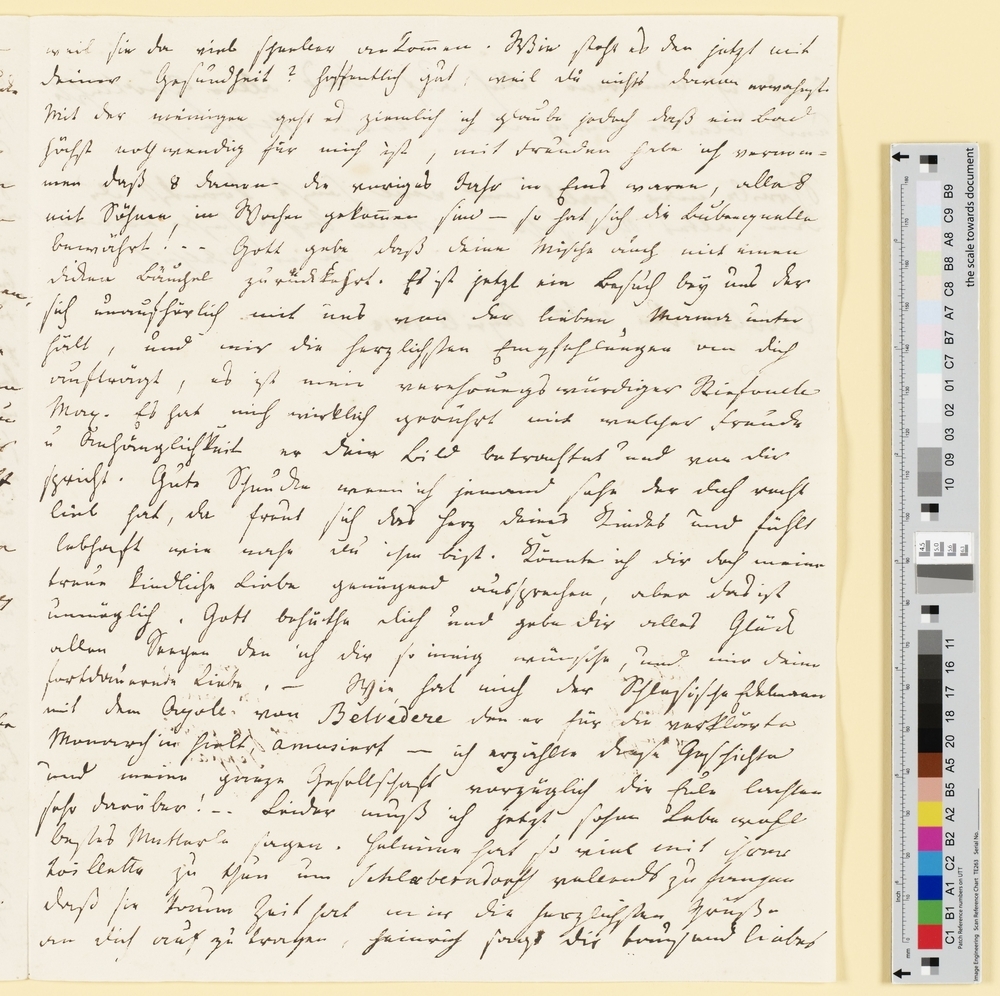 weil sie da viel schneller ankommen. Wie steht es den jetzt mit
deiner Gesundheit? hoffentlich gut, weil du nichts davon erwähnst.
Mit der meinigen geht es ziemlich ich glaube jedoch daß ein Bad
höchst nothwendig für mich ist, mit Freuden habe ich vernom=
men daß 8 Damen die voriges Jahr in Ems waren, alle 8
mit Söhnen in Wochen gekommen sind — so hat sich die Bubenquelle
bewährt! -- Gott gebe daß deine Mische auch mit einen
dicken Bäuchel zurückkehrt. Es ist jetzt ein Besuch bey uns der
sich unaufhörlich mit uns von der lieben Mama unter
hält, und mir die herzlichsten Empfehlungen an dich
aufträgt, es ist mein verehrungswürdiger Stiefoncle
Max. Es hat mich wirklich gerührt mit welcher Freude
u Anhänglichkeit er dein Bild betrachtet und von dir
spricht. Gute wenn ich jemand sehe der dich recht
lieb hat, da freut sich das Herz deines Kindes und fühlt
lebhaft wie nahe du ihm bist. Könnte ich dir doch meine
treue kindliche Liebe genügend aussprechen, aber das ist
unmöglich. Gott behüthe dich und gebe dir alles Glück
allen Seegen den ich dir so innig wünsche, und mir deine
fortdauernde Liebe. — Wie hat mich der Schlesische Edelmann
mit dem von Belvedere den er für die verklärte
Monarchin hielt, amusiert — ich erzählte diese Geschichte
und meine ganze Gesellschaft vorzüglich die lachten
sehr darüber! -- Leider muß ich jetzt schon Lebe wohl
bestes Mutterle sagen. hat so viel mit ihrer
Toillette zu thun um Schlaberndorff vollends zu fangen
daß sie kaum Zeit hat mir die herzlichsten Grüße
an dich auf zu tragen, Heinrich sagt dir tausend liebes